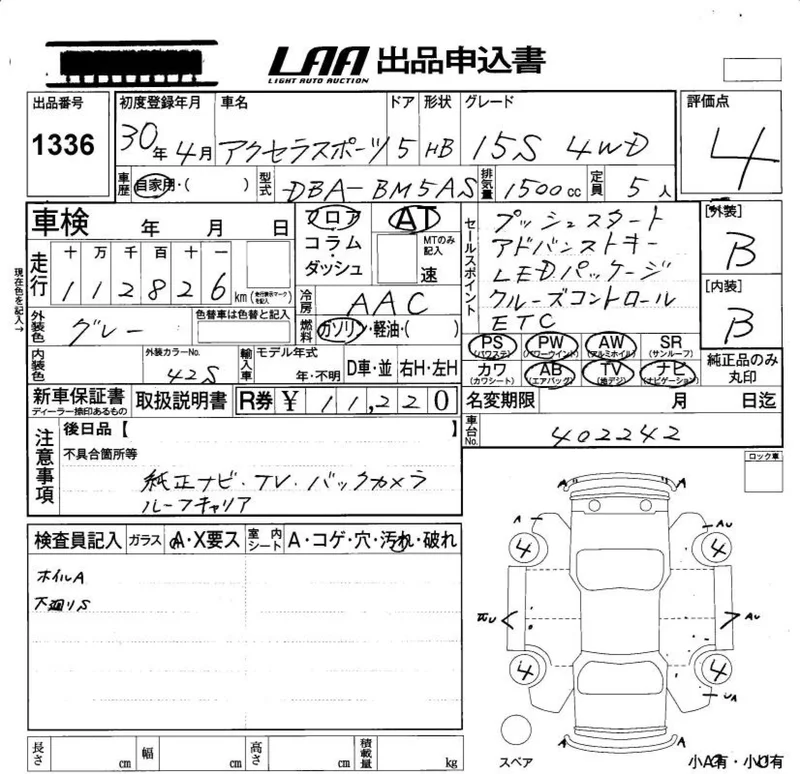 LAA 出品申込書
LIGHT AUTO AUCTION
出品番号 1336
初度登録年月 30年4月
車名 アクセラスポーツ
ドア 5
形状 HB
グレード 15S 4WD
評価点 4
車歴 自家用・( )
型式 DBA-BM5AS
排気量 1500cc
定員 5人
車検 年 月 日
フロア コラム・ダッシュ
AT MTのみ記入 速
セールスポイント
プッシュスタート
アドバンストキー
LEDパッケージ
クルーズコントロール
ETC
[外装] B
[内装] B
現在色を記入→
走行 十 万 千 百 十 一
1 1 2 8 2 6 km (走行表示マークを記入)
冷房 AAC
燃料 ガソリン・軽油・( )
外装色 グレー
色替車は色替と記入
PS (パワステ) PW (パワーウインド) AW (アルミホイル) SR (サンルーフ)
カワ (カワシート) AB (エアバッグ) TV (地デジ) ナビ (ナビゲーション)
純正品のみ丸印
内装色
外装カラーNo. 42S
輸入車 モデル年式 年・不明 D車・並 右H・左H
新車保証書 ディーラー捺印あるもの
取扱説明書
R券 ¥ 11,220
名変期限 月 日迄
車台No. 402242
注意事項
後日品【
不具合箇所等
純正ナビ・TV・バックカメラ
ルーフキャリア
ロック車
検査員記入 ガラス A・X要ス
室内シート A・コゲ・穴・汚れ・破れ
ホイルA
下廻りS
A A
A AU
4 4
AU
4 4
UA
A A
スペア
小A有・小U有
長さ cm 幅 cm 高さ cm 積載量 kg